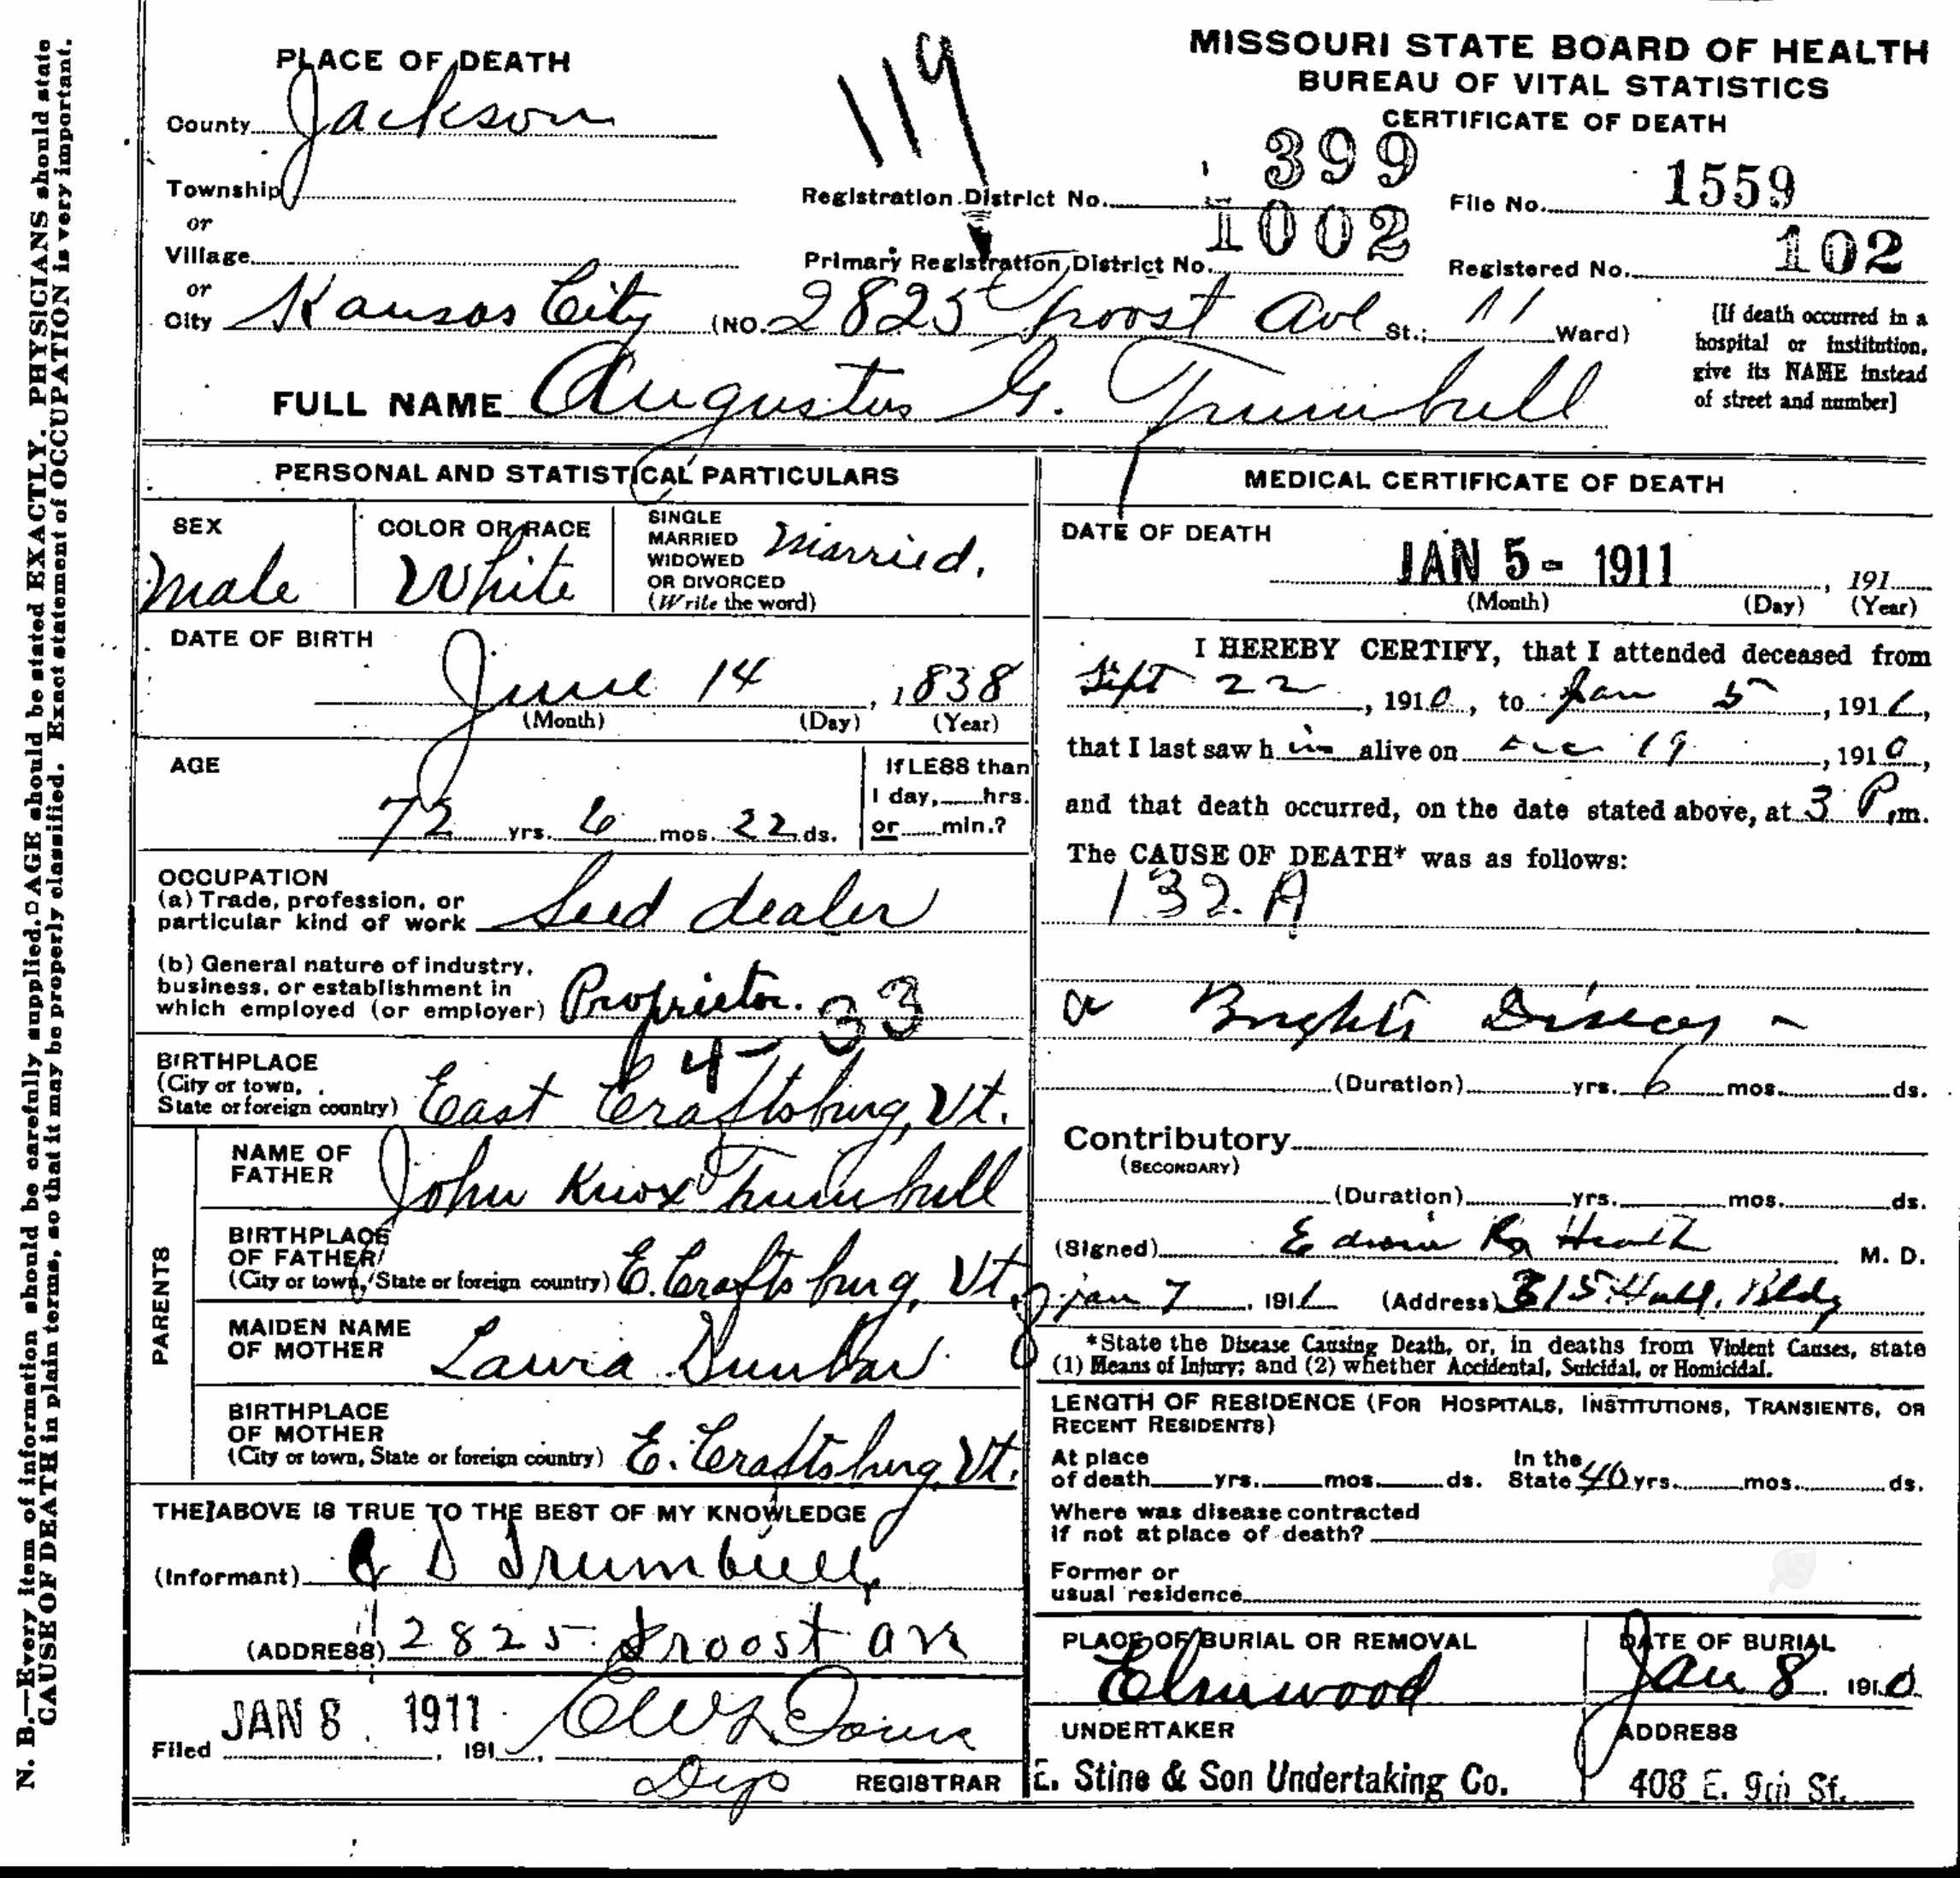 MISSOURI STATE BOARD OF HEALTH
BUREAU OF VITAL STATISTICS
CERTIFICATE OF DEATH
PLACE OF DEATH
119
County Jackson
Township
or
Village
or
City Kansas City (NO. 2825 Troost Ave St.; 11 Ward)
Registration District No. 399
File No. 1559
Primary Registration District No. 1002
Registered No. 102
[If death occurred in a
hospital or institution,
give its NAME instead
of street and number]
FULL NAME Augustus G. Trumbull
PERSONAL AND STATISTICAL PARTICULARS
SEX
Male
COLOR OR RACE
White
SINGLE
MARRIED
WIDOWED
OR DIVORCED
(Write the word)
Married.
DATE OF BIRTH
June 14, 1838
(Month) (Day) (Year)
AGE
72 yrs. 6 mos. 22 ds.
If LESS than
1 day, hrs.
or min.?
OCCUPATION
(a) Trade, profession, or
particular kind of work Seed dealer
(b) General nature of industry,
business, or establishment in
which employed (or employer) Proprietor. 33
4-
BIRTHPLACE
(City or town,
State or foreign country) East Craftsburg, Vt.
PARENTS
NAME OF
FATHER
John Knox Trumbull
BIRTHPLACE
OF FATHER
(City or town, State or foreign country) E. Craftsburg, Vt.
MAIDEN NAME
OF MOTHER
Laura Dunbar
BIRTHPLACE
OF MOTHER
(City or town, State or foreign country) E. Craftsburg, Vt.
THE ABOVE IS TRUE TO THE BEST OF MY KNOWLEDGE
(Informant) D Trumbull
(ADDRESS) 2825 Troost av
Filed JAN 8, 1911, 191
Dep REGISTRAR
MEDICAL CERTIFICATE OF DEATH
DATE OF DEATH
JAN 5 - 1911, 191
(Month) (Day) (Year)
I HEREBY CERTIFY, that I attended deceased from
Sept 22, 1910, to Jan 5, 1911,
that I last saw him alive on Dec 19, 1910,
and that death occurred, on the date stated above, at 3 P.m.
The CAUSE OF DEATH* was as follows:
132 A
Brights Diseas
(Duration) yrs. 6 mos. ds.
Contributory
(SECONDARY)
(Duration) yrs. mos. ds.
(Signed) Edwin R Heath M. D.
Jan 7, 1911 (Address) 315 Hall. Bldg
*State the Disease Causing Death, or, in deaths from Violent Causes, state
(1) Means of Injury; and (2) whether Accidental, Suicidal, or Homicidal.
LENGTH OF RESIDENCE (FOR HOSPITALS, INSTITUTIONS, TRANSIENTS, OR
RECENT RESIDENTS)
At place
of death yrs. mos. ds.
In the
State 40 yrs. mos. ds.
Where was disease contracted
if not at place of death?
Former or
usual residence
PLACE OF BURIAL OR REMOVAL
Elmwood
DATE OF BURIAL
Jan 8, 1910
UNDERTAKER
E. Stine & Son Undertaking Co.
ADDRESS
408 E. 9th St.
N. B.—Every item of information should be carefully supplied. AGE should be stated EXACTLY. PHYSICIANS should state
CAUSE OF DEATH in plain terms, so that it may be properly classified. Exact statement of OCCUPATION is very important.